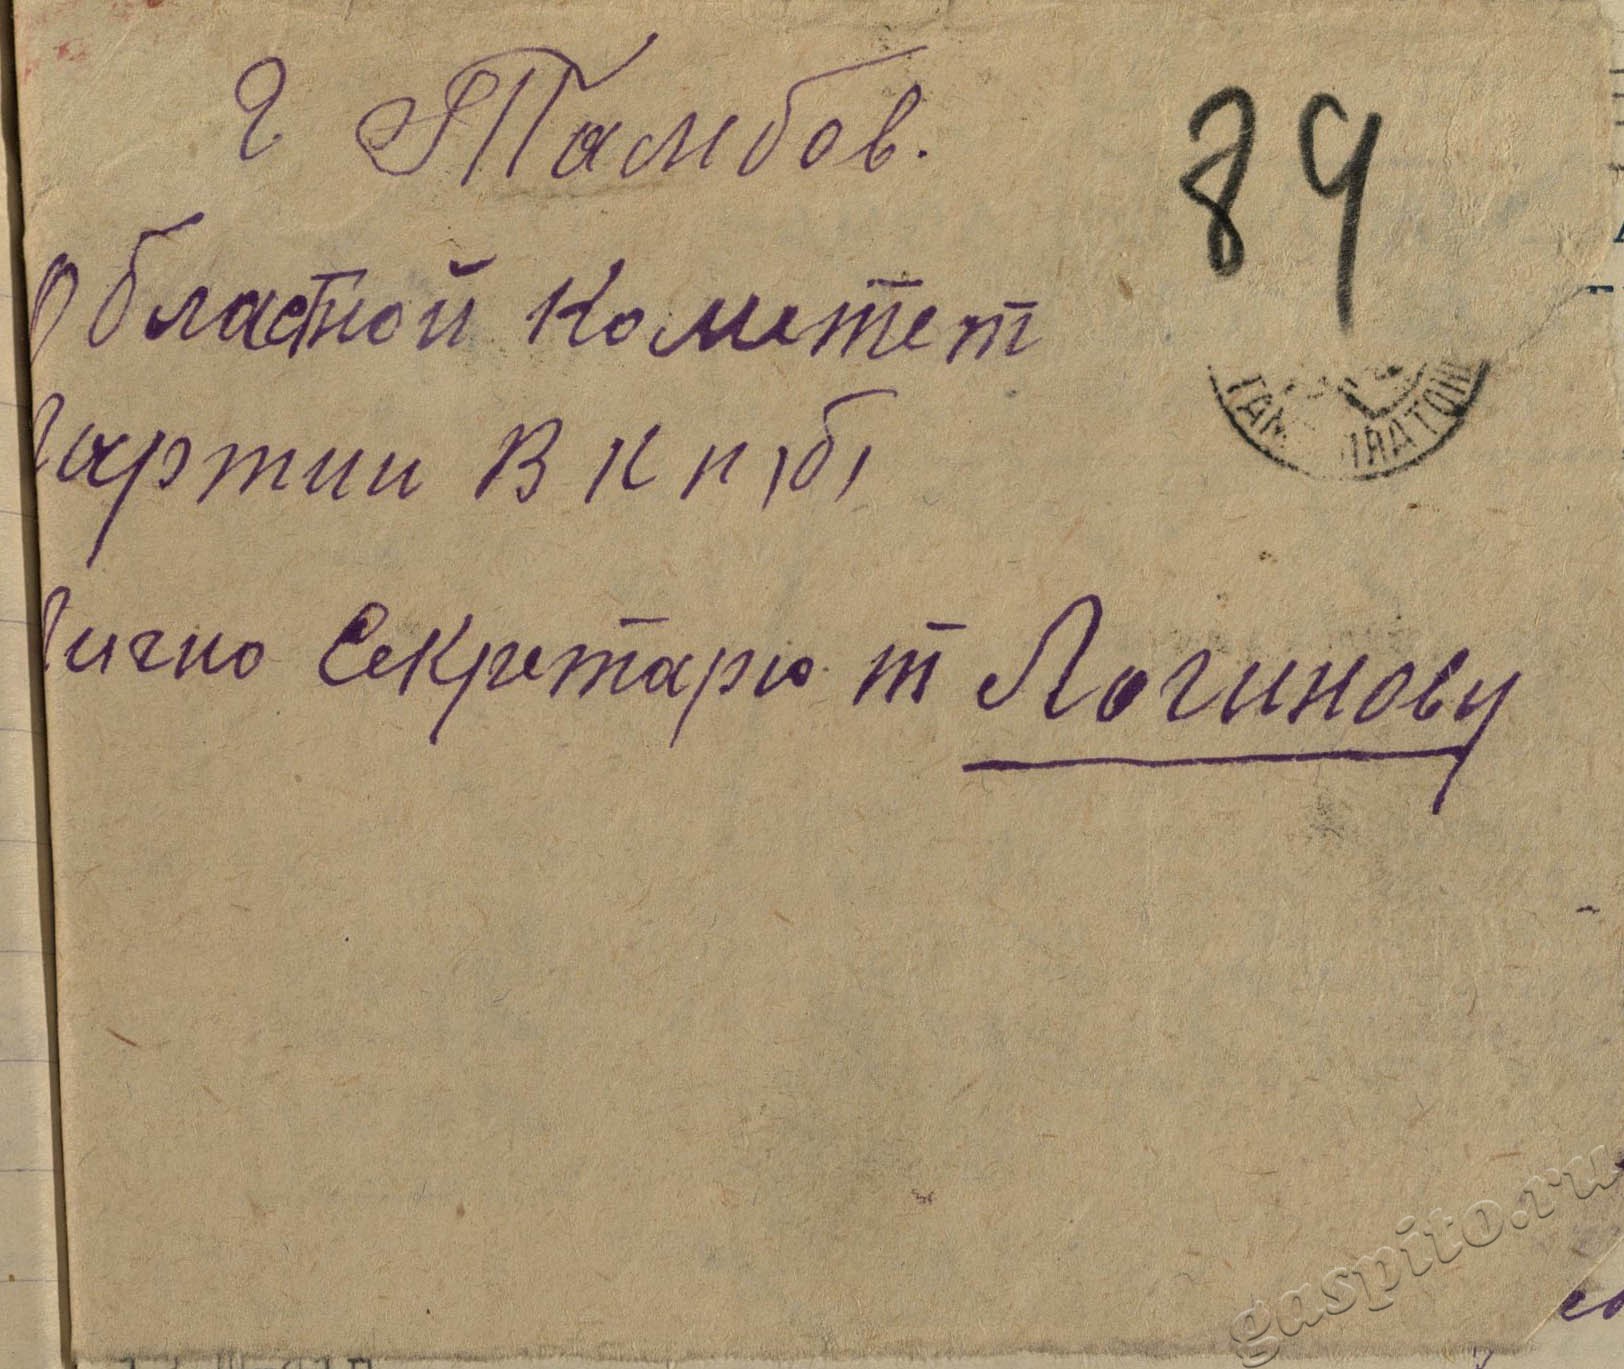 г Тамбов.
89
Областной Комитет
Партии В К п(б)
Лично Секретарю т Логинову
gaspito.ru